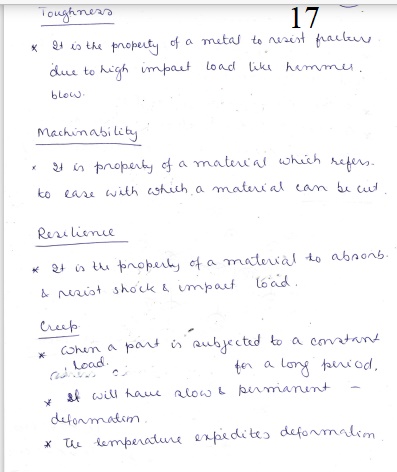 Toughness
17
* It is the property of a metal to resist fracture
due to high impact load like hemmer.
blow.
Machinability
* It is property of a material which refers.
to ease with which a material can be cut.
Resilience
* It is the property of a material to absorb.
& resist shock & impact load.
Creep
* When a part is subjected to a constant
Load. for a long period,
* It will have slow & permanent –
deformation.
* The temperature expedites deformation